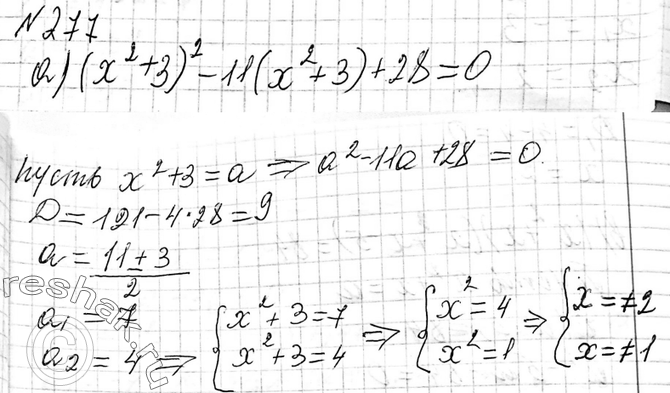 №277
а) (x²+3)²-11(x²+3)+28=0
пусть x²+3=a ⇒ a²-11a+28=0
D=121-4·28=9
a = (11±3)/2
a₁ = 7
a₂ = 4 ⇒ { x²+3=7 x²+3=4 ⇒ { x²=4 x²=1 ⇒ { x=±2 x=±1